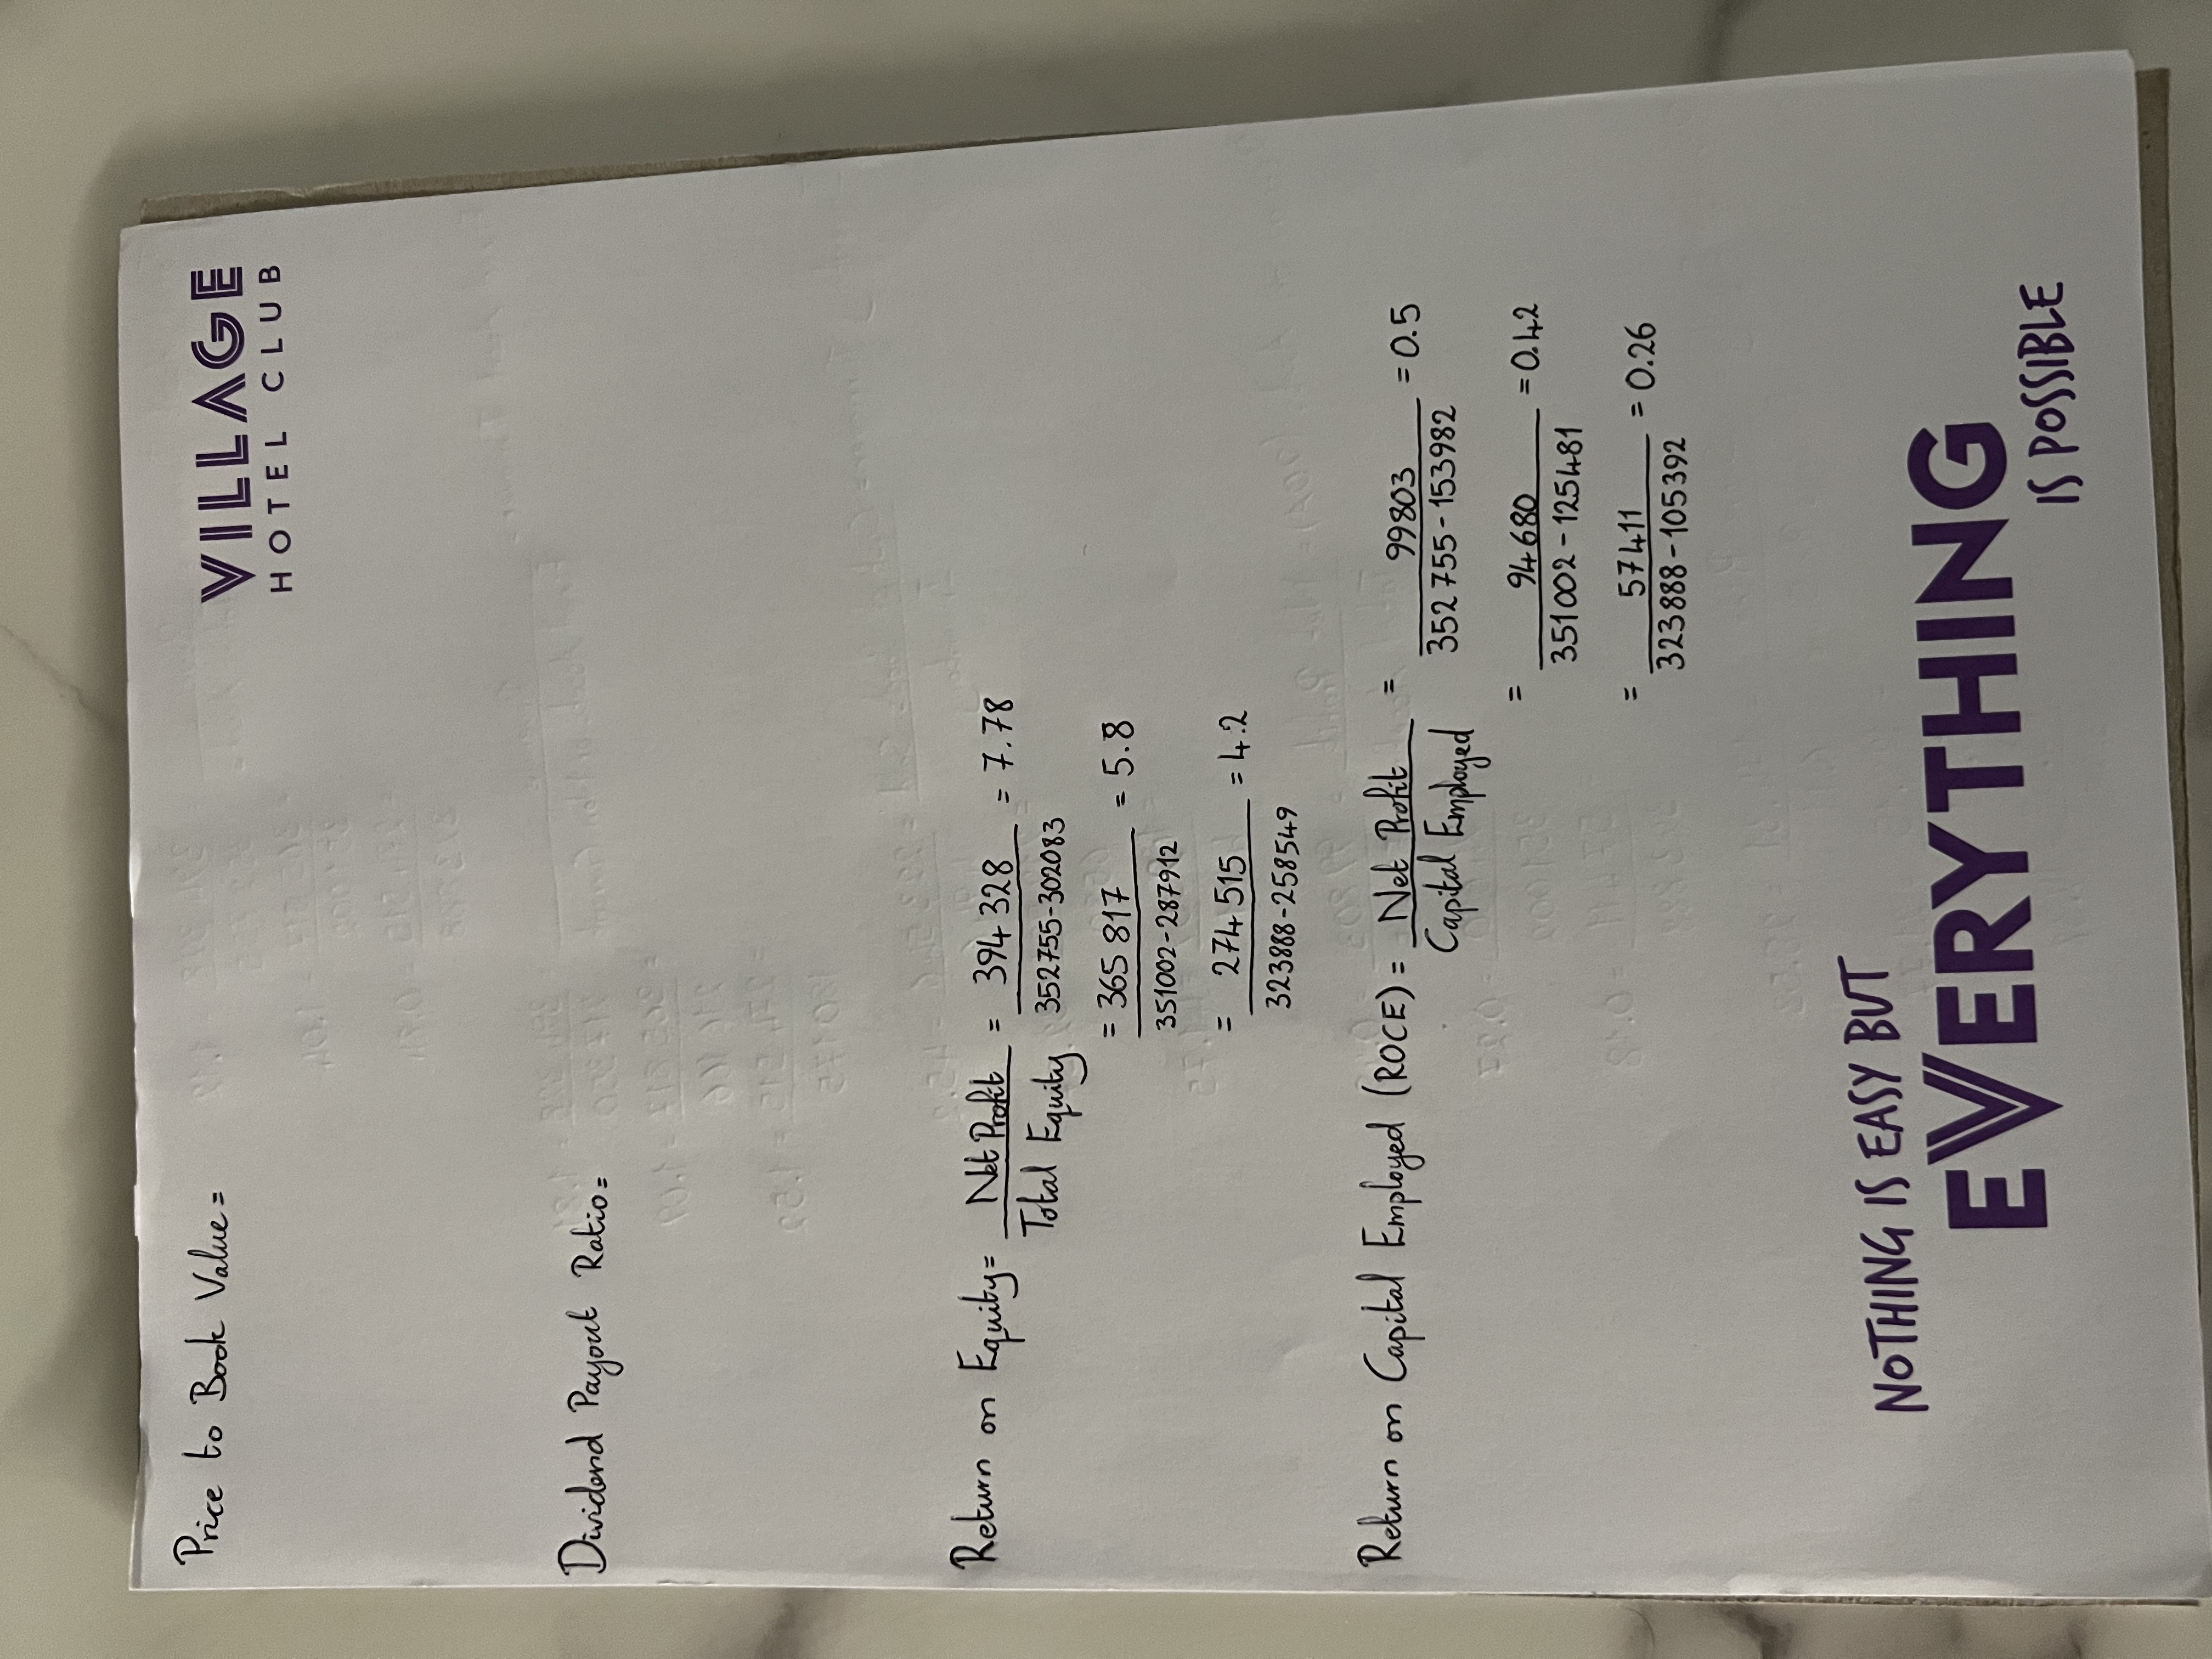 VILLAGE
HOTEL CLUB
Price to Book Value=
Dividend Payout Ratio=
Return on Equity= Net Profit / Total Equity = 394 328 / 352755-302083 = 7.78
= 365 817 / 351002-287912 = 5.8
= 274 515 / 323888-258549 = 4.2
Return on Capital Employed (ROCE) = Net Profit / Capital Employed = 99803 / 352755-153982 = 0.5
= 94680 / 351002-125481 = 0.42
= 57411 / 323888-105392 = 0.26
NOTHING IS EASY BUT
EVERYTHING
IS POSSIBLE